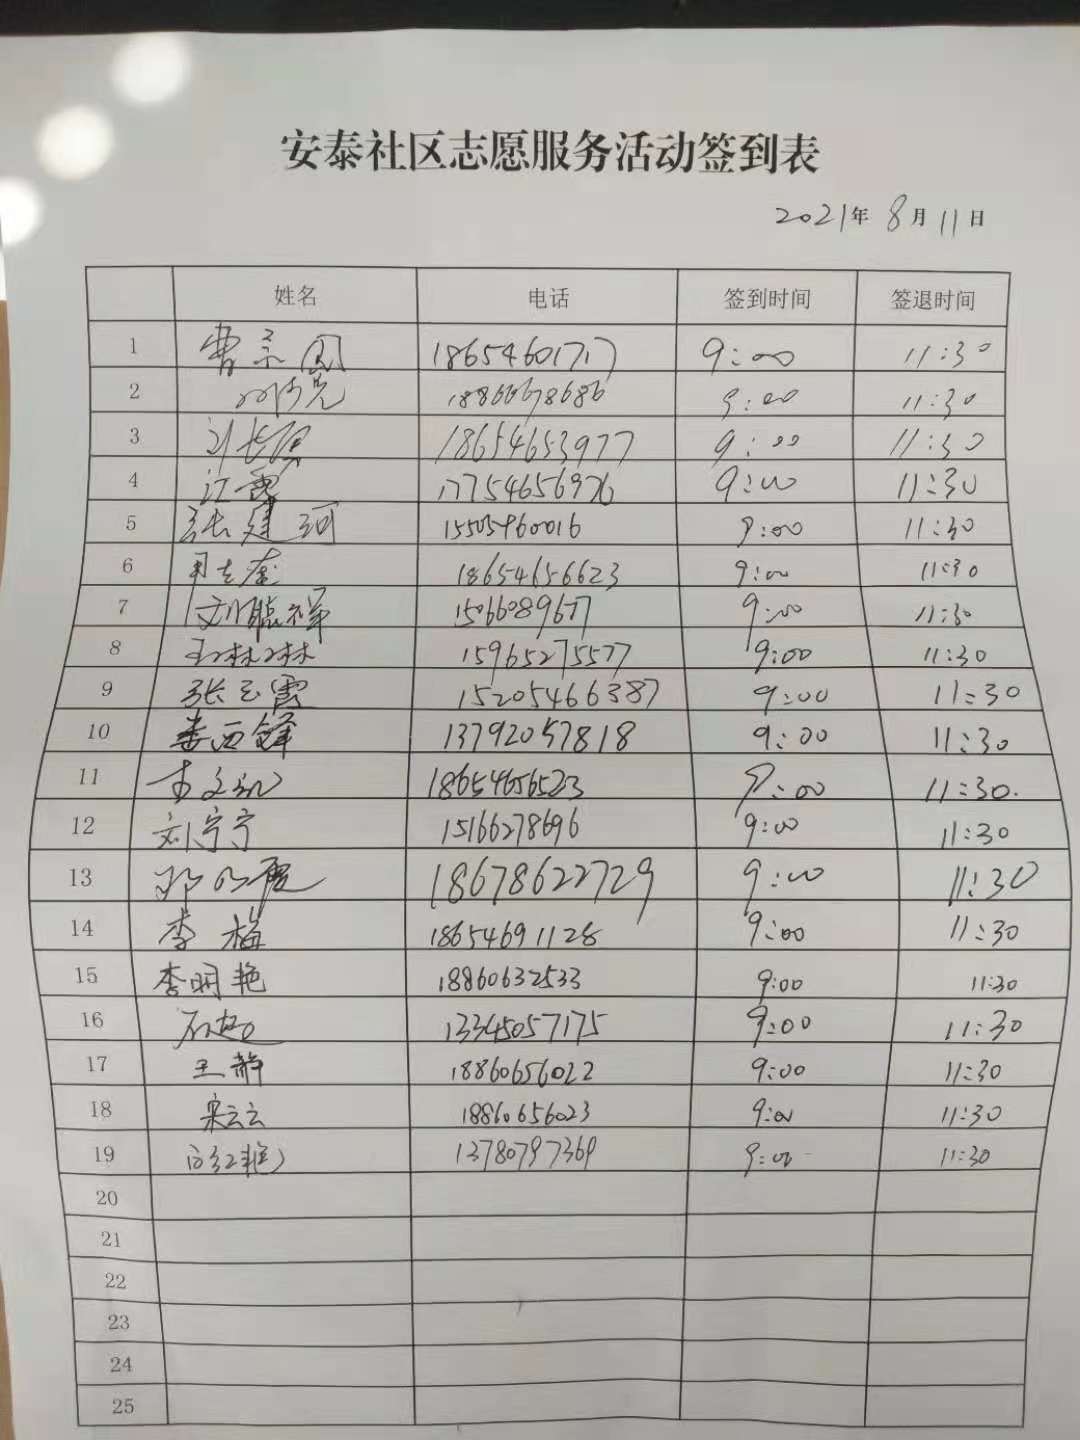 安泰社区志愿服务活动签到表
2021年 8月 11日
姓名 电话 签到时间 签退时间
1 曹宗国 18654601717 9:00 11:30
2 18866678686 9:00 11:30
3 刘长 18654653977 9:00 11:30
4 江霞 17754656976 9:00 11:30
5 张建河 15505460016 9:00 11:30
6 18654656623 9:00 11:30
7 刘临祥 15066089677 9:00 11:30
8 王林林 15965275577 9:00 11:30
9 张玉霞 15205466387 9:00 11:30
10 娄西锋 13792057818 9:00 11:30
11 李文 18654656523 9:00 11:30.
12 刘宁宁 15166278696 9:00 11:30
13 18678622729 9:00 11:30
14 李梅 18654691128 9:00 11:30
15 李明艳 18860632533 9:00 11:30
16 13345057175 9:00 11:30
17 王静 18860656022 9:00 11:30
18 宋云云 18860656023 9:00 11:30
19 13780797369 9:00 11:30
20
21
22
23
24
25